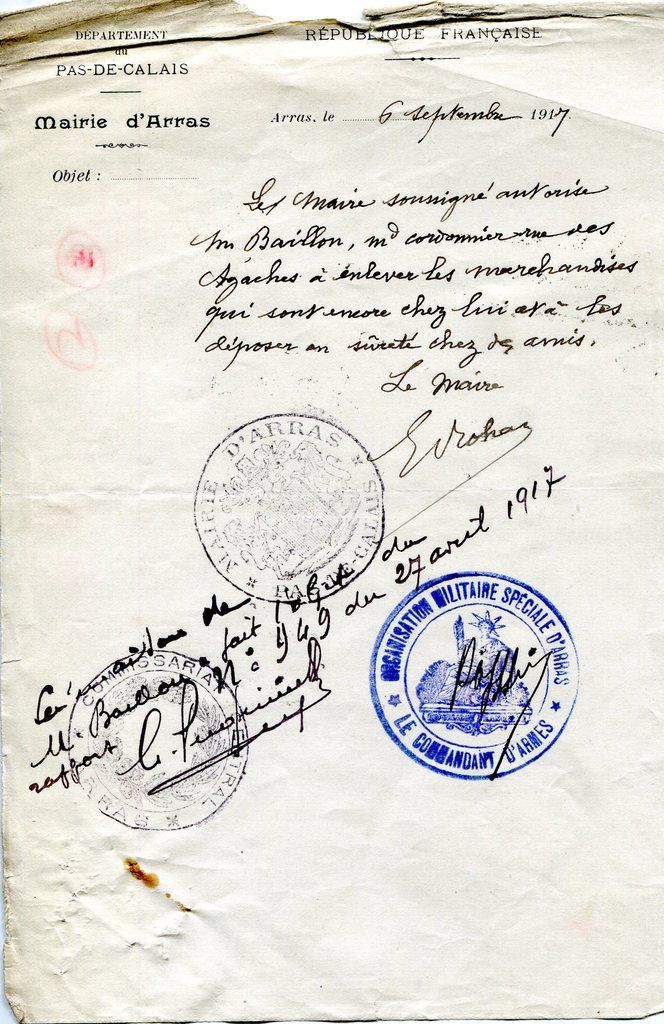 DÉPARTEMENT
du
PAS-DE-CALAIS
RÉPUBLIQUE FRANÇAISE
Mairie d'Arras
Arras, le 6 Septembre 1917.
Objet :
Le Maire soussigné autorise
Mr Baillon, md cordonnier rue des
Agaches à enlever les marchandises
qui sont encore chez lui et à les
déposer en sûreté chez des amis.
Le Maire
MAIRIE D'ARRAS * PAS-DE-CALAIS *
La maison de
M. Baillon a fait l'objet du
rapport N° 949 du 27 avril 1917
COMMISSARIAT CENTRAL * ARRAS *
ORGANISATION MILITAIRE SPÉCIALE D'ARRAS
* LE COMMANDANT D'ARMES *